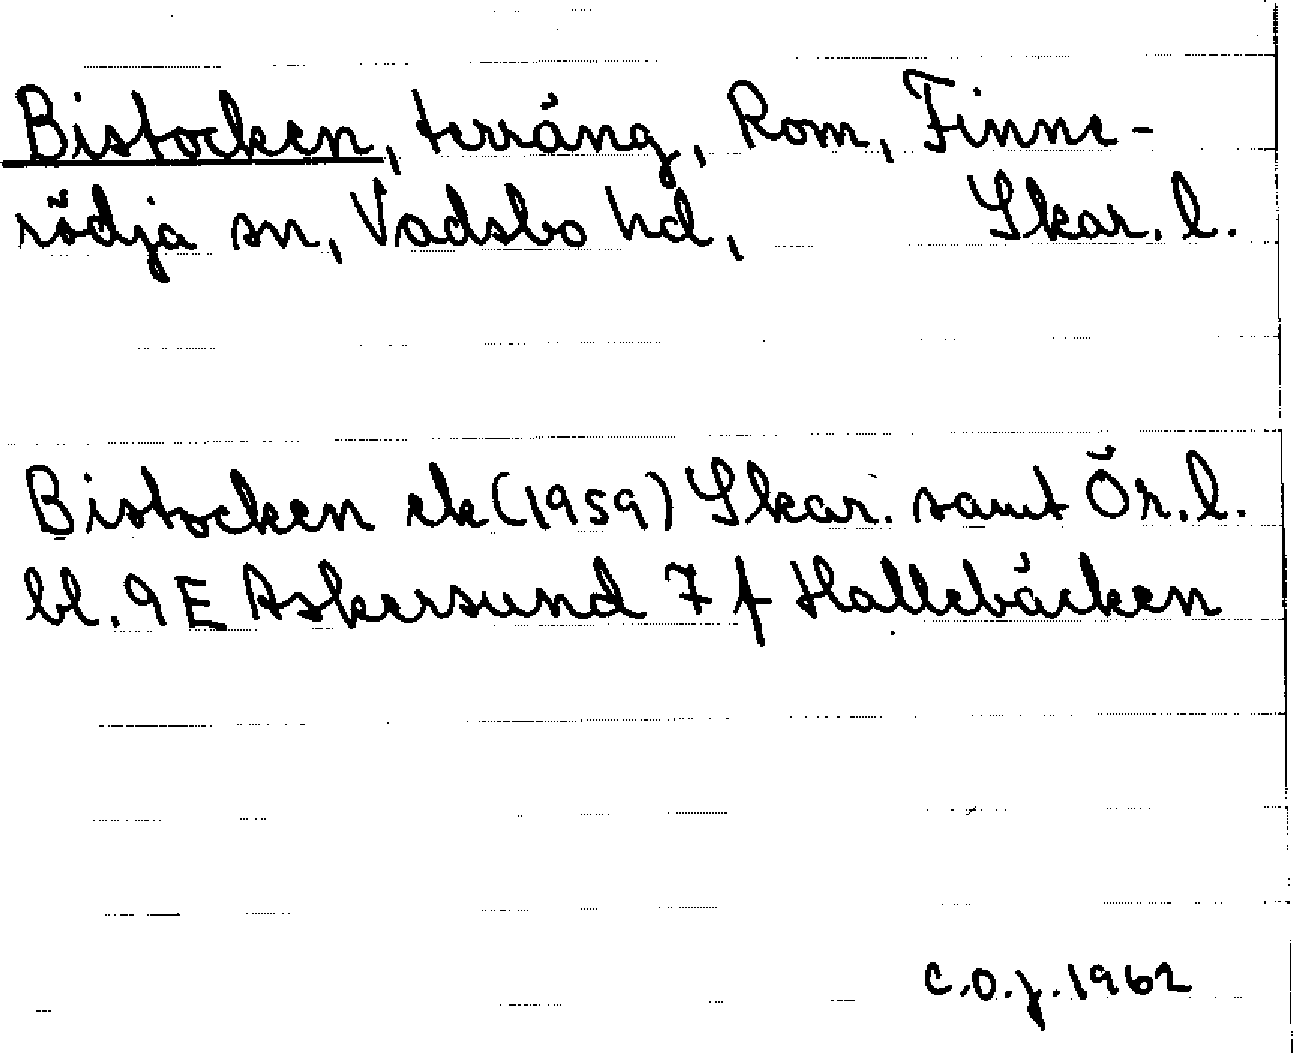 Bistocken, terräng, Rom, Finne-
rödja sn, Vadsbo hd, Skar. l.
Bistocken ek (1959) Skar. samt Ör. l.
bl. 9 E Askersund 7 f Hallebäcken
C.O.J. 1962